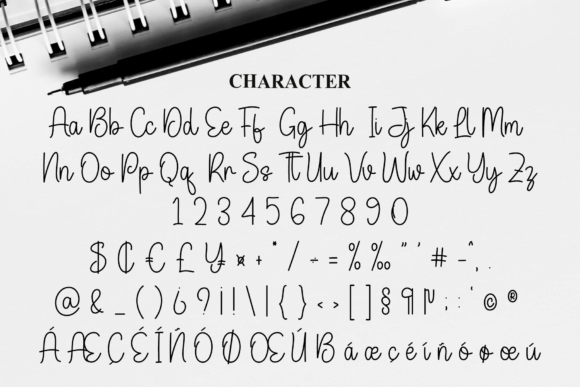 CHARACTER
Aa Bb Cc Dd Ee Ff Gg Hh Ii Jj Kk Ll Mm
Nn Oo Pp Qq Rr Ss Tt Uu Vv Ww Xx Yy Zz
1 2 3 4 5 6 7 8 9 0
$ ₵ € £ ¥ ¤ + * / ÷ = % ‰ " ' # - ^ , .
@ & _ ( ) ¿ ? ¡ ! \ | { } < > [ ] § ¶ µ ; : ` © ®
Á Æ Ç É Í Ñ Ó Ø Œ Ú ß á æ ç é í ñ ó ø œ ú